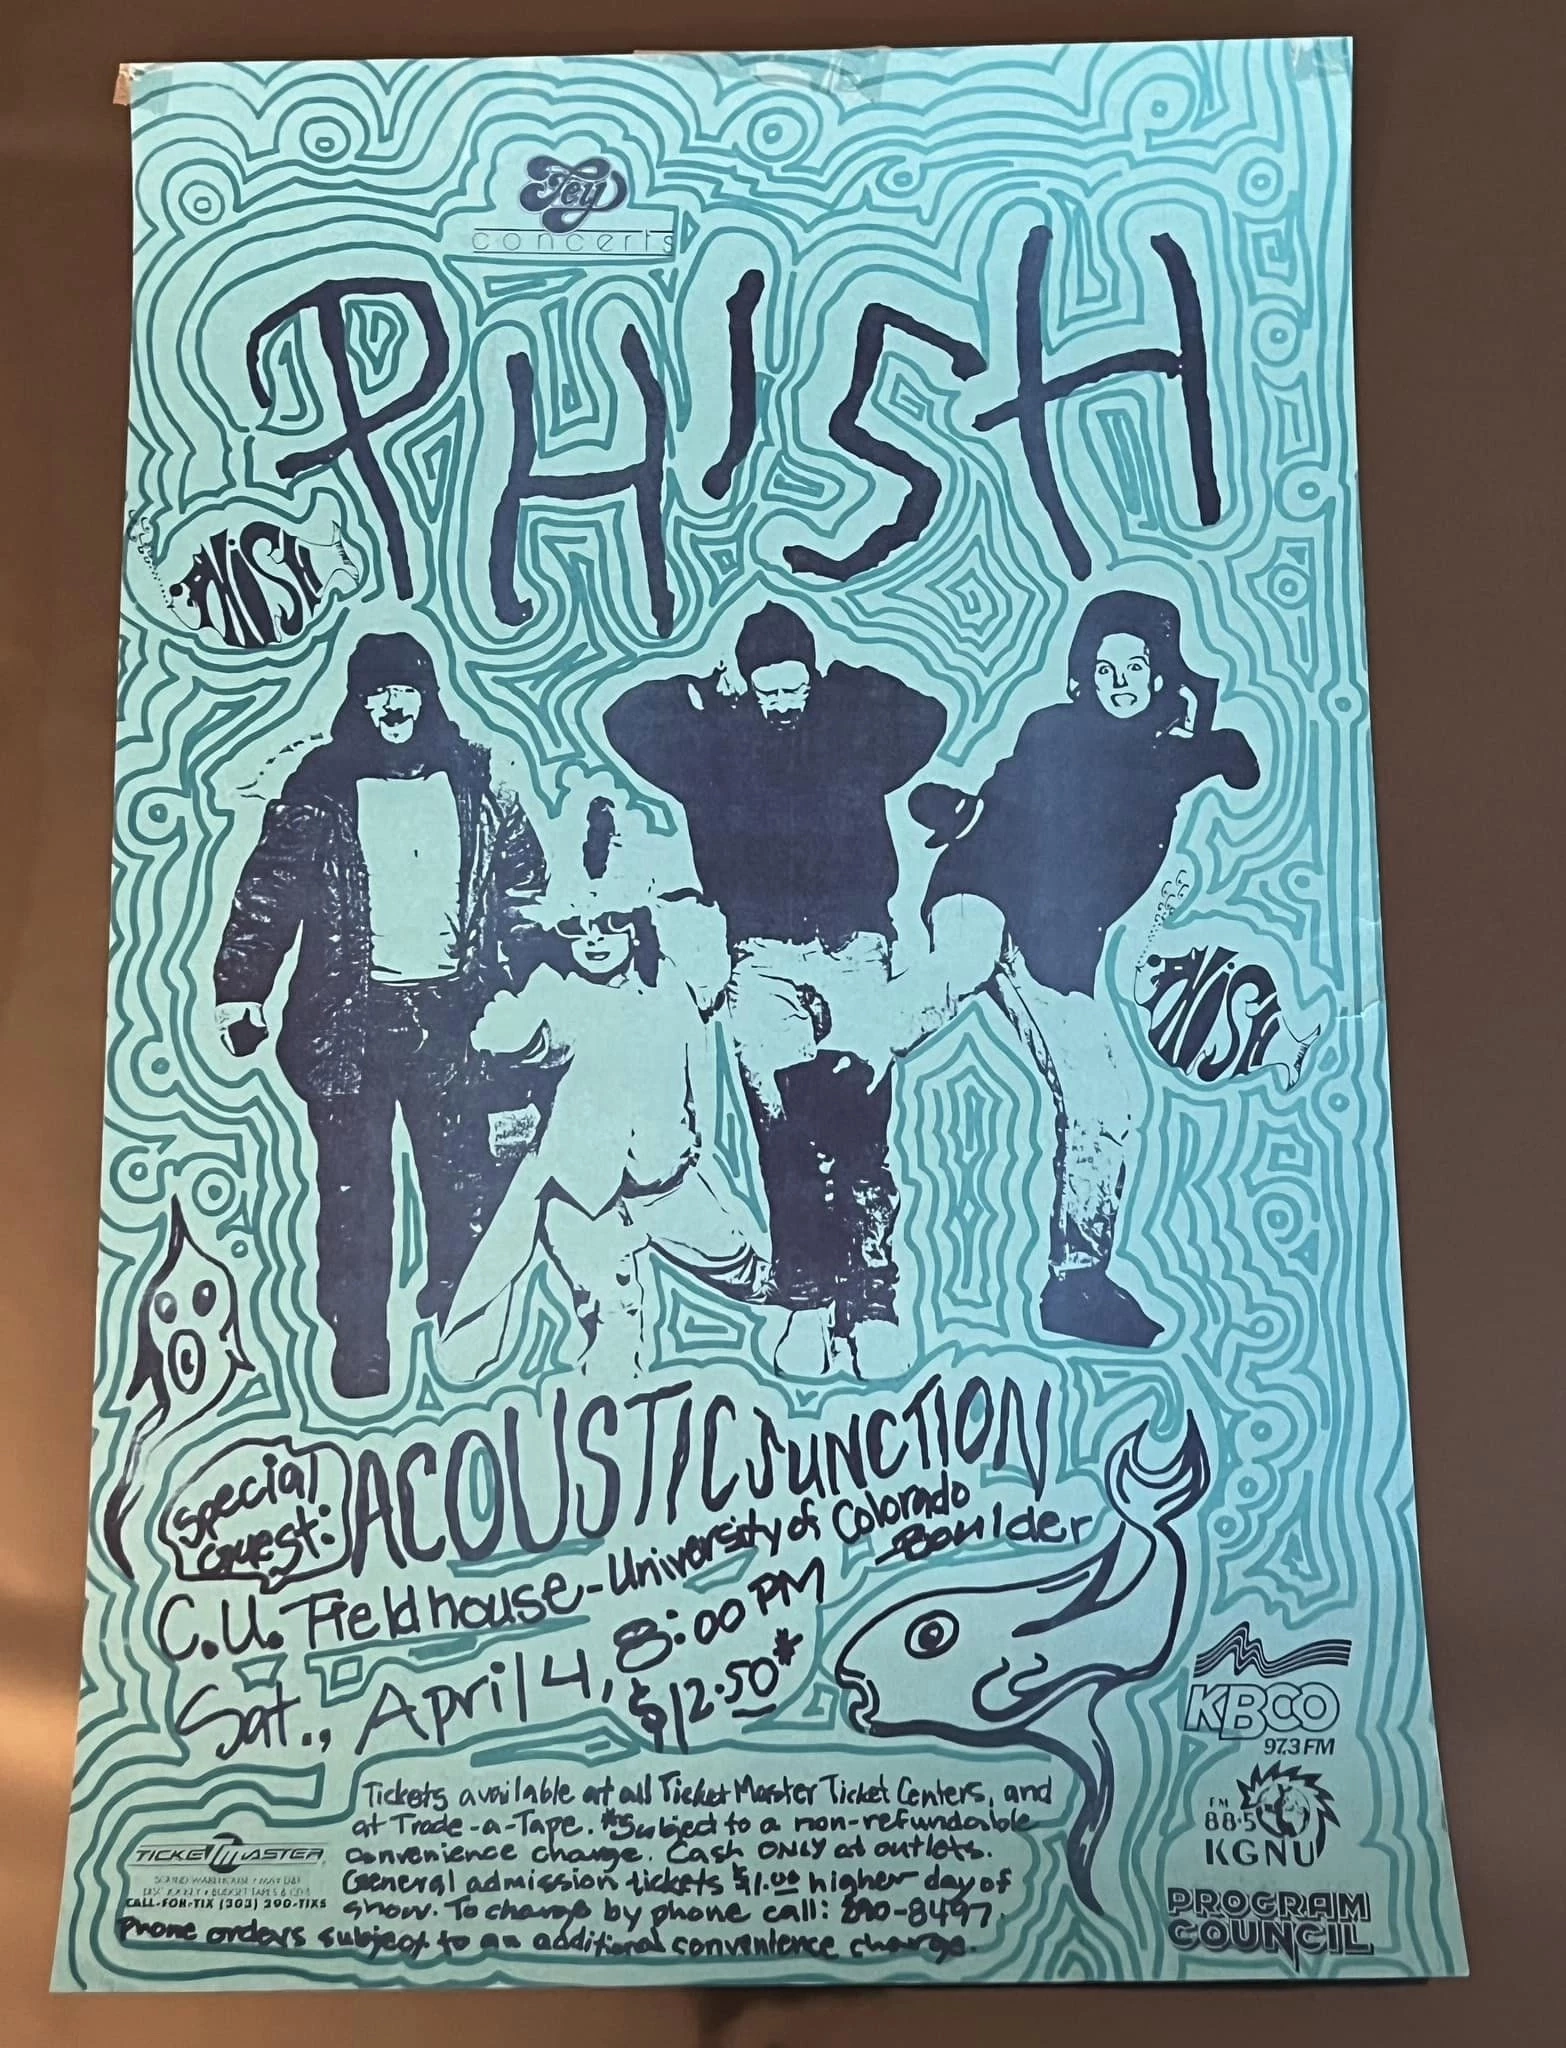 Fey
concerts
PHISH
PHISH
PHISH
special guest:
ACOUSTIC JUNCTION
C.U. Fieldhouse - University of Colorado
-Boulder
Sat., April 4, 8:00 PM
$12.50*
KBCO
97.3 FM
FM
88.5
KGNU
PROGRAM
COUNCIL
Tickets available at all Ticket Master Ticket Centers, and
at Trade-a-Tape. *Subject to a non-refundable
convenience charge. Cash ONLY at outlets.
General admission tickets $1.00 higher day of
show. To charge by phone call: 290-8497.
Phone orders subject to an additional convenience charge.
TICKETMASTER
SOUND WAREHOUSE / MAY D&F
DISC JOCKEY • BUDGET TAPES & CD'S
CALL-FOR-TIX (303) 290-TIXS